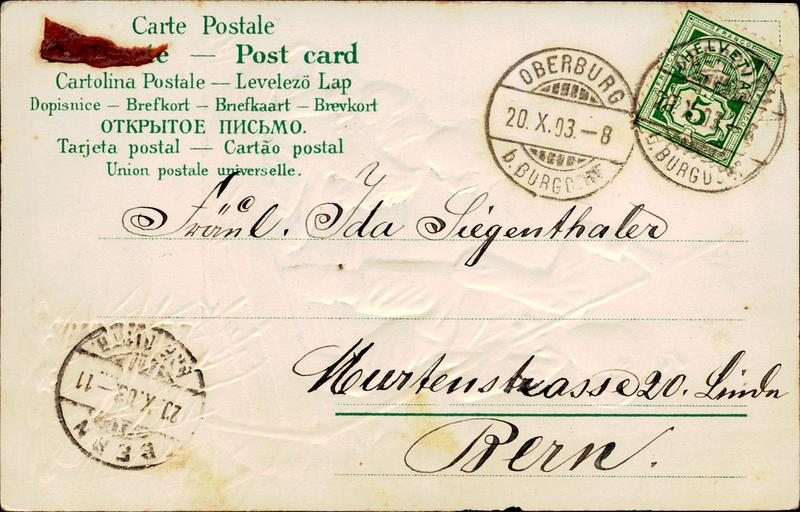 Carte Postale
— Post card
Cartolina Postale — Levelezö Lap
Dopisnice — Brefkort — Briefkaart — Brevkort
ОТКРЫТОЕ ПИСЬМО.
Tarjeta postal — Cartão postal
Union postale universelle.
OBERBURG
20.X.03.–8
b. BURGDORF
FRANCO
HELVETIA
5
Fräul. Ida Siegenthaler
Murtenstrasse 20. Linde
Bern.
20.X.03.–11
BERN